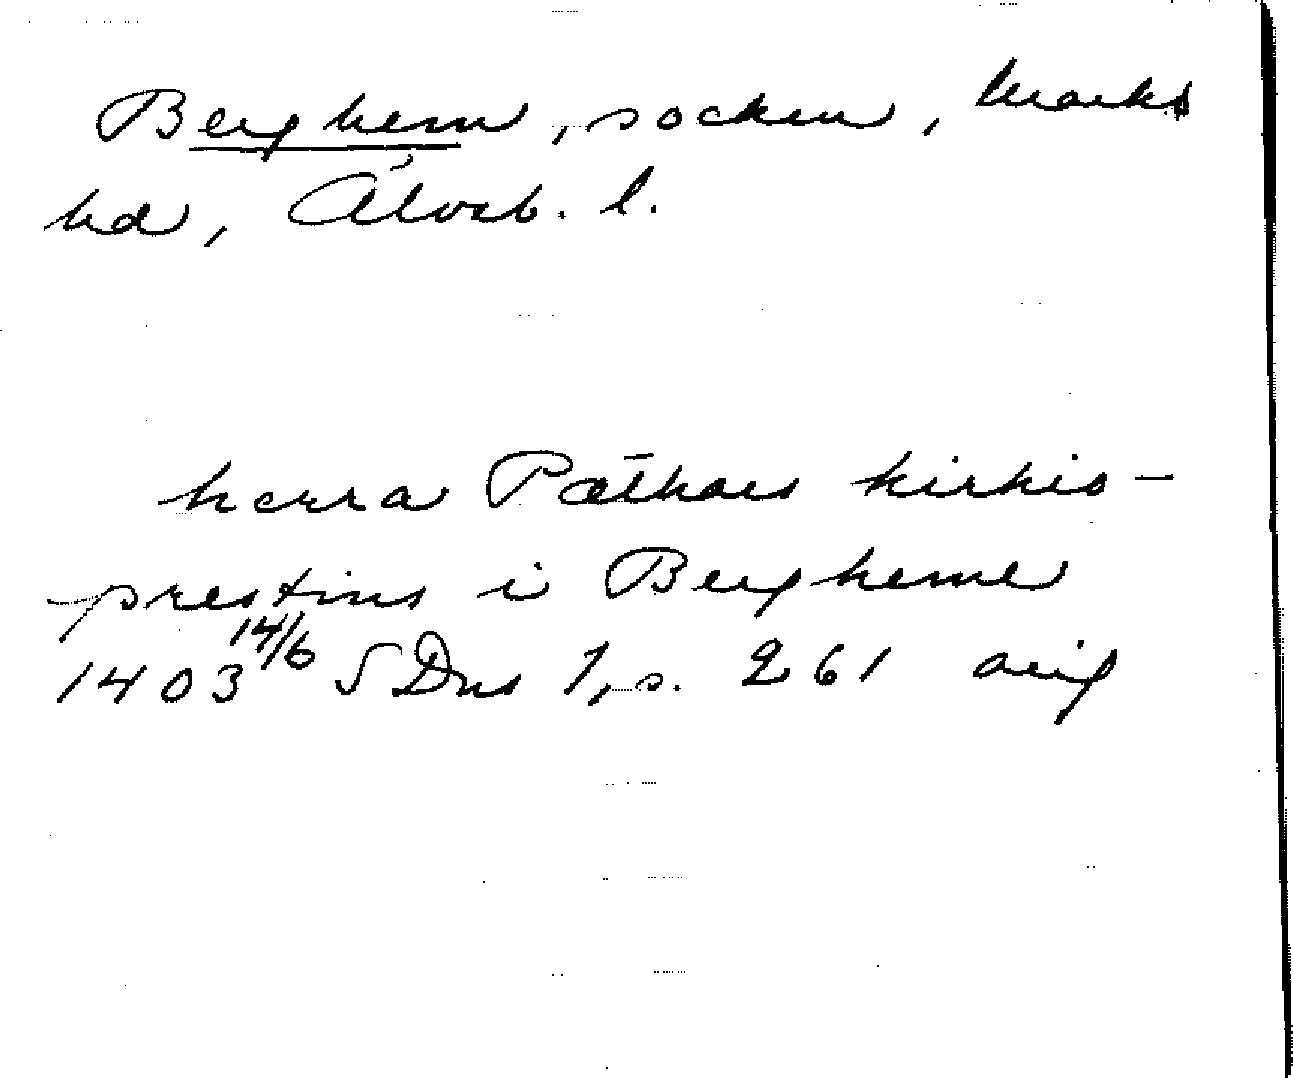 Berghem, socken, Marks
hd, Älvsb. l.
herra Pæthars kirkio-
prestins i Bergheme
1403 14/6 SDns 1, s. 261 orig